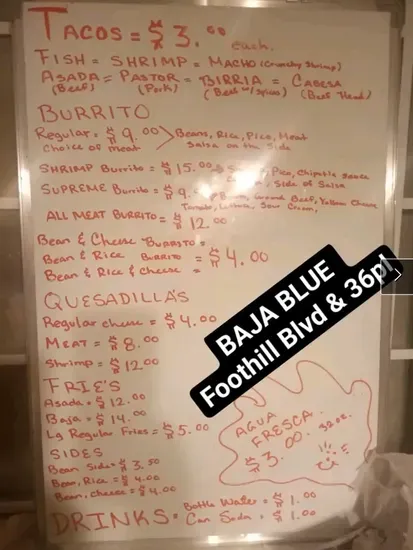 TACOS = $3.00 each.
FISH = SHRIMP = MACHO (Crunchy Shrimp)
ASADA = PASTOR = BIRRIA = CABESA
(Beef) (Pork) (Beef w/ Spices) (Beef Head)
BURRITO
Regular = $9.00 Beans, Rice, Pico, Meat
Choice of meat Salsa on the Side
SHRIMP Burrito = $15.00 Pico, Chipotle Sauce
Side of Salsa
SUPREME Burrito = $9. Ground Beef, Yellow Cheese
Tomato, Lettuce, Sour Cream,
ALL MEAT BURRITO = $12.00
Bean & Cheese BURRITO =
Bean & Rice BURRITO = $4.00
Bean & Rice & Cheese =
QUESADILLA'S
Regular cheese = $4.00
MEAT = $8.00
Shrimp = $12.00
FRIE'S
Asada = $12.00
Baja = $14.00
Lg Regular Fries = $5.00
SIDES
Bean Side = $3.50
Bean, Rice = $4.00
Bean, cheese = $4.00
DRINKS = Bottle Water = $1.00
Can Soda = $1.00
AGUA
FRESCA.
$3.00. 32oz.
BAJA BLUE
Foothill Blvd & 36pl